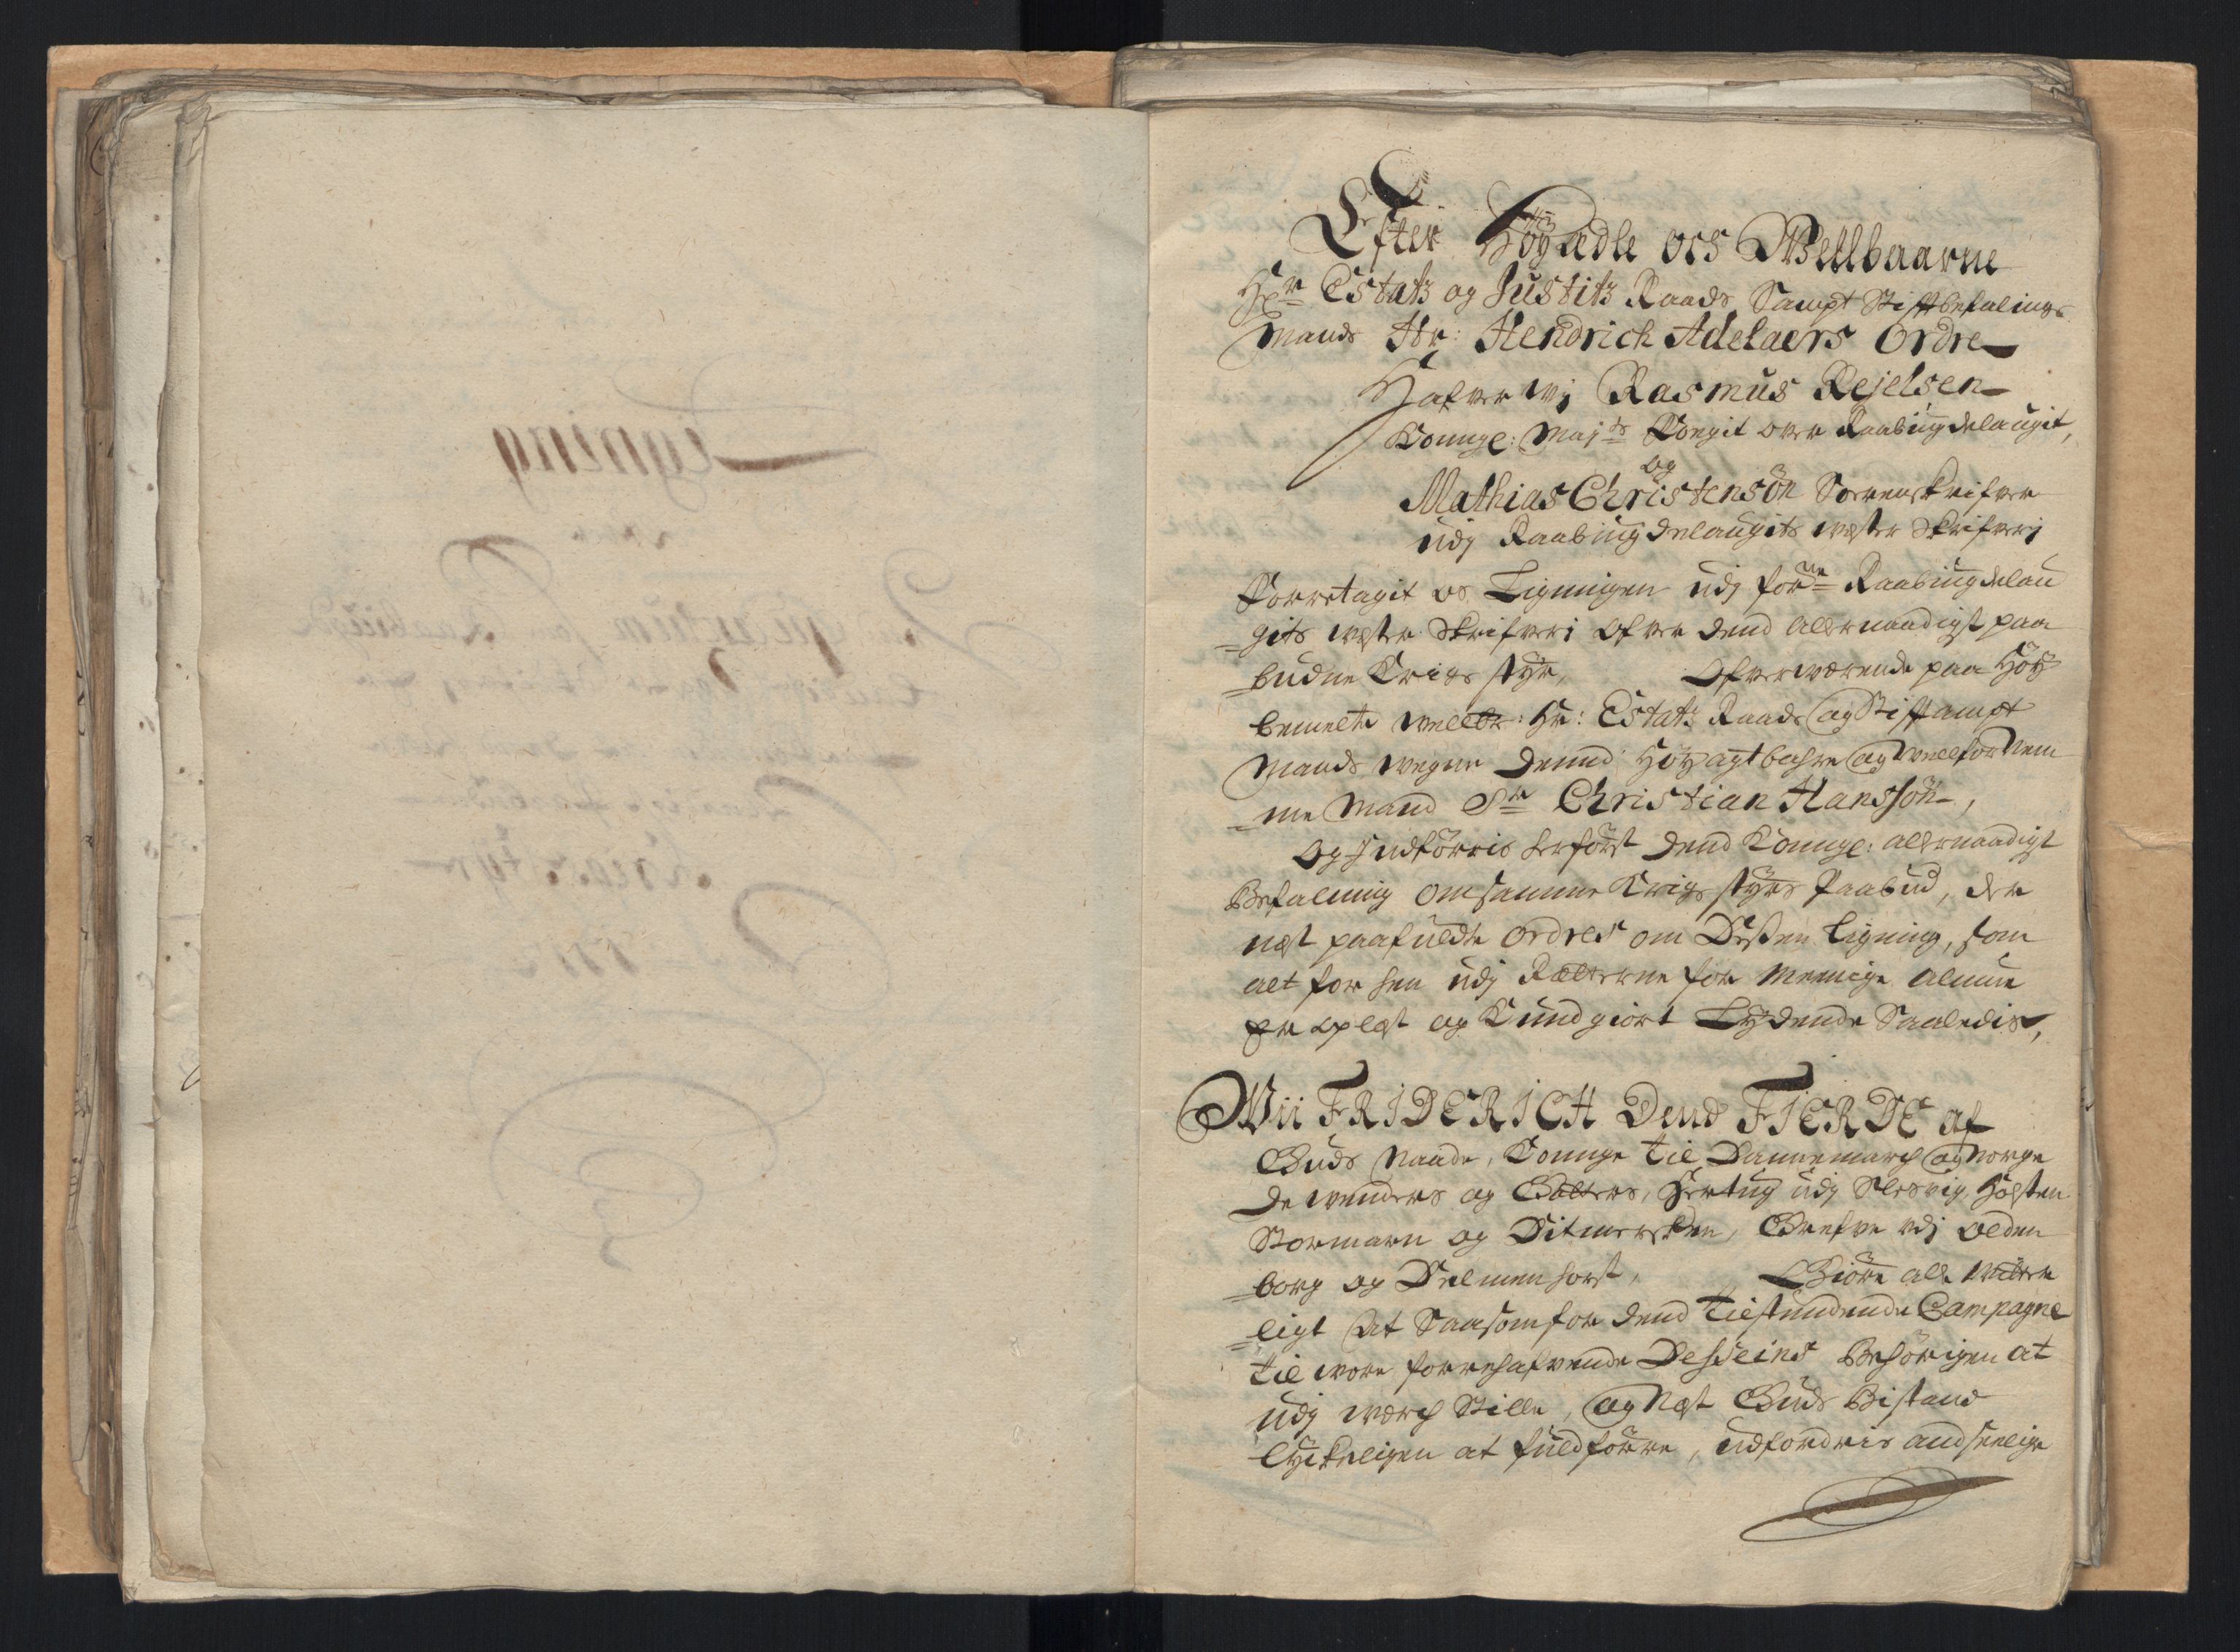 Efter Höyædle ocs Wellbaarne
Hr Estatz og Justitz Raads Sampt Stiftbefalings
mands Hr: Hendrich Adelaers Ordre
Hafver wj Rasmus Rejelsen
Konngl: Maj: ts Fougit over Raabÿgdelaugit,
og
Mathias Christensön Sorrenskrifver
udj Raabÿgdelaugits wester Skrifverj
Forretagit os Ligningen udj forne Raabÿgdelau
=gits wester Skrifveri Ofver dend allernaadigst paa
=budne Krigs styr, Ofverværende paa Höy
bemelte wellb: Hr: Estatz Raads og Stiftampt
Mands wegne Dennd Höyagtbahre og Wellfornem
=me Mand Sr Christian Hanssön,
Og Jndförris herförst Dend Konngl: allernaadigst
Befalning om samme Krigs styrs Paabud, der
nest paafuldte Ordres om Deßen Ligning, som
alt for hen udj Rætterne for Meenige Almue
er oplest og Kundgiort Lydende Saaledis,
Wii FRIDERICH Dend FIERDE af
Guds Naade, Konnge til Dannemarch og Norge
De wenders og Gotters, Hertug udj Slesvig, Holsten
Stormarn og Ditmersken, Grefve udj Olden
=borg og Delmenhorst, Giöre alle witter
=ligt At Saasom for dend tilstundende Campagne
til wore forrehafvende Desseins Behörigen at
udj werch Stille, og Nest Guds Bistand
lychkeligen at fuldförre, udfordris andseelige